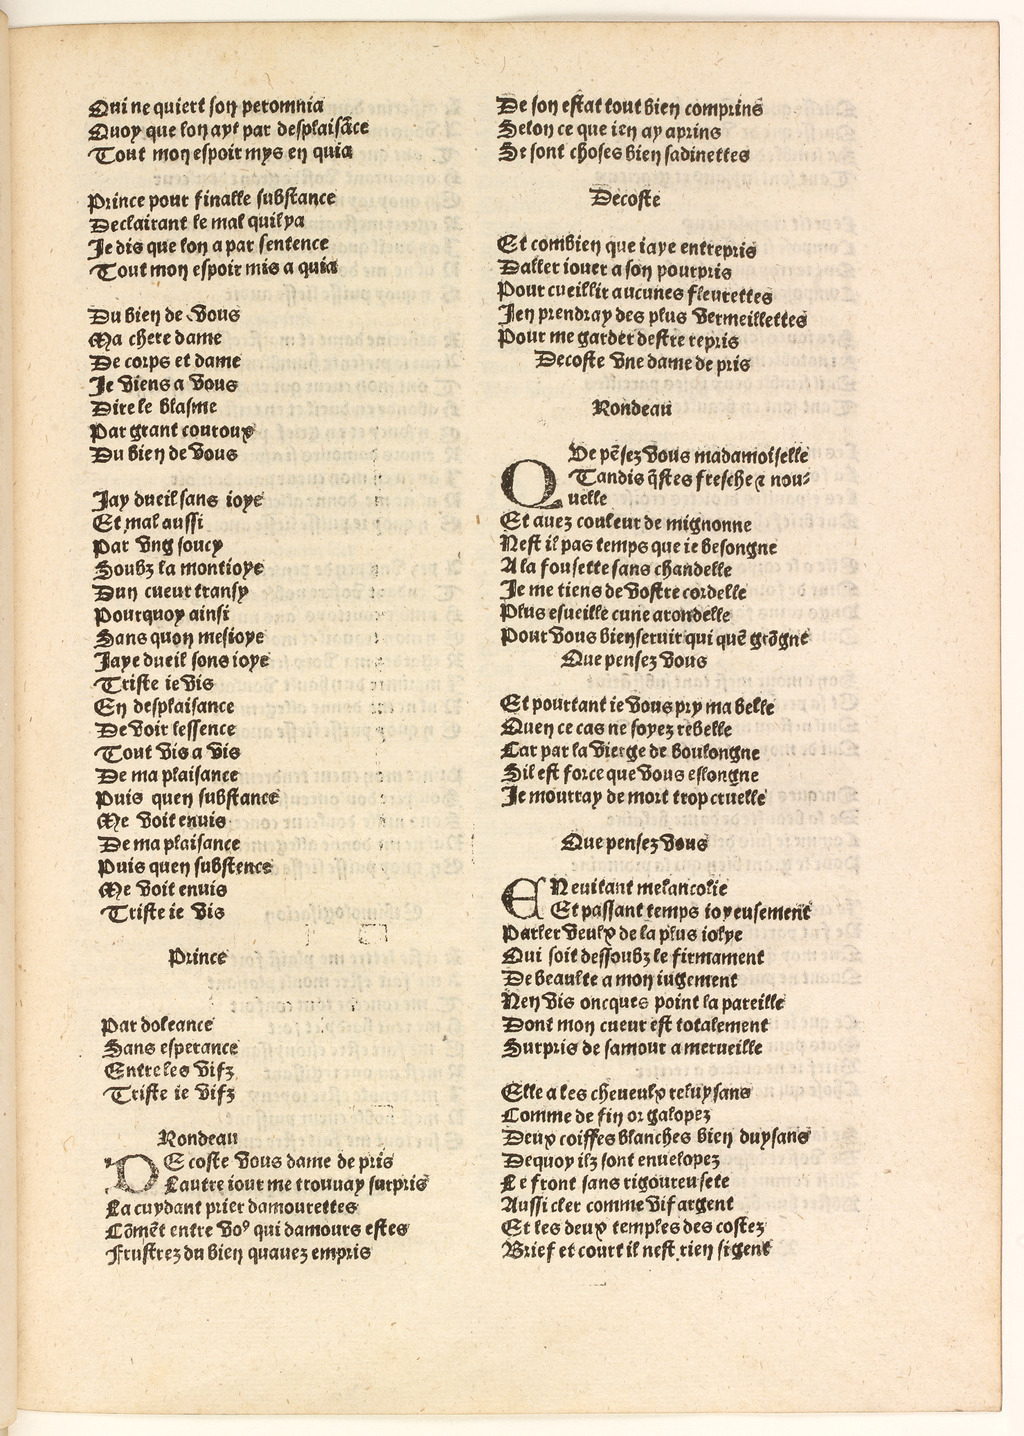 Qui ne quiert son peromnia
Quoy que lon ayt par desplaisāce
Tout mon espoir mys en quia
Prince pour finalle substance
Declairant le mal quil ya
Je dis que lon a par sentence
Tout mon espoir mis a quia
Du bien de vous
Ma chere dame
De corps et dame
Je viens a vous
Dire le blasme
Par grant couroux
Du bien de vous
Jay dueil sans ioye
Et mal aussi
Par vng soucy
Soubz la montioye
Dun cueur transy
Pourquoy ainsi
Sans quon mesioye
Jaye dueil sons ioye
Triste ie vis
En desplaisance
De voir lessence
Tout vis a vis
De ma plaisance
Puis quen substance
Me voit enuis
De ma plaisance
Puis quen substence
Me voit enuis
Triste ie vis
Prince
Par doleance
Sans esperance
Entre les vifz
Triste ie vifz
Rondeau
DE coste vous dame de pris
Lautre iour me trouuay surpris
La cuydant prier damourettes
Cōmēt entre vo⁹ qui damours estes
Frustrez du bien quauez empris
De son estat tout bien comprins
Selon ce que ien ay aprins
Se sont choses bien sadinettes
Decoste
Et combien que iaye entrepris
Daller iouer a son pourpris
Pour cueillir aucunes fleurettes
Jen prendray des plus vermeillettes
Pour me garder destre repris
Decoste vne dame de pris
Rondeau
QVe pēsez vous madamoiselle
Tandis q̄stes fresche ⁊ nou⸗
uelle
Et auez couleur de mignonne
Nest il pas temps que ie besongne
A la fousette sans chandelle
Je me tiens de vostre cordelle
Plus esueille cune arondelle
Pour vous bien seruir qui quē grōgne
Que pensez vous
Et pourtant ie vous pry ma belle
Quen ce cas ne soyez rebelle
Car par la vierge de boulongne
Sil est force que vous eslongne
Je mourray de mort trop cruelle
Que pensez vous
EN euitant melancolie
Et passant temps ioyeusement
Parler veulx de la plus iolye
Qui soit dessoubz le firmament
De beaulte a mon iugement
Nen vis oncques point la pareille
Dont mon cueur est totalement
Surpris de samour a merueille
Elle a les cheueulx reluysans
Comme de fin or galopez
Deux coiffes blanches bien duysans
Dequoy ilz sont enuelopez
Le front sans rigoureusete
Aussi cler comme vif argent
Et les deux temples des costez
Brief et court il nest rien si gent